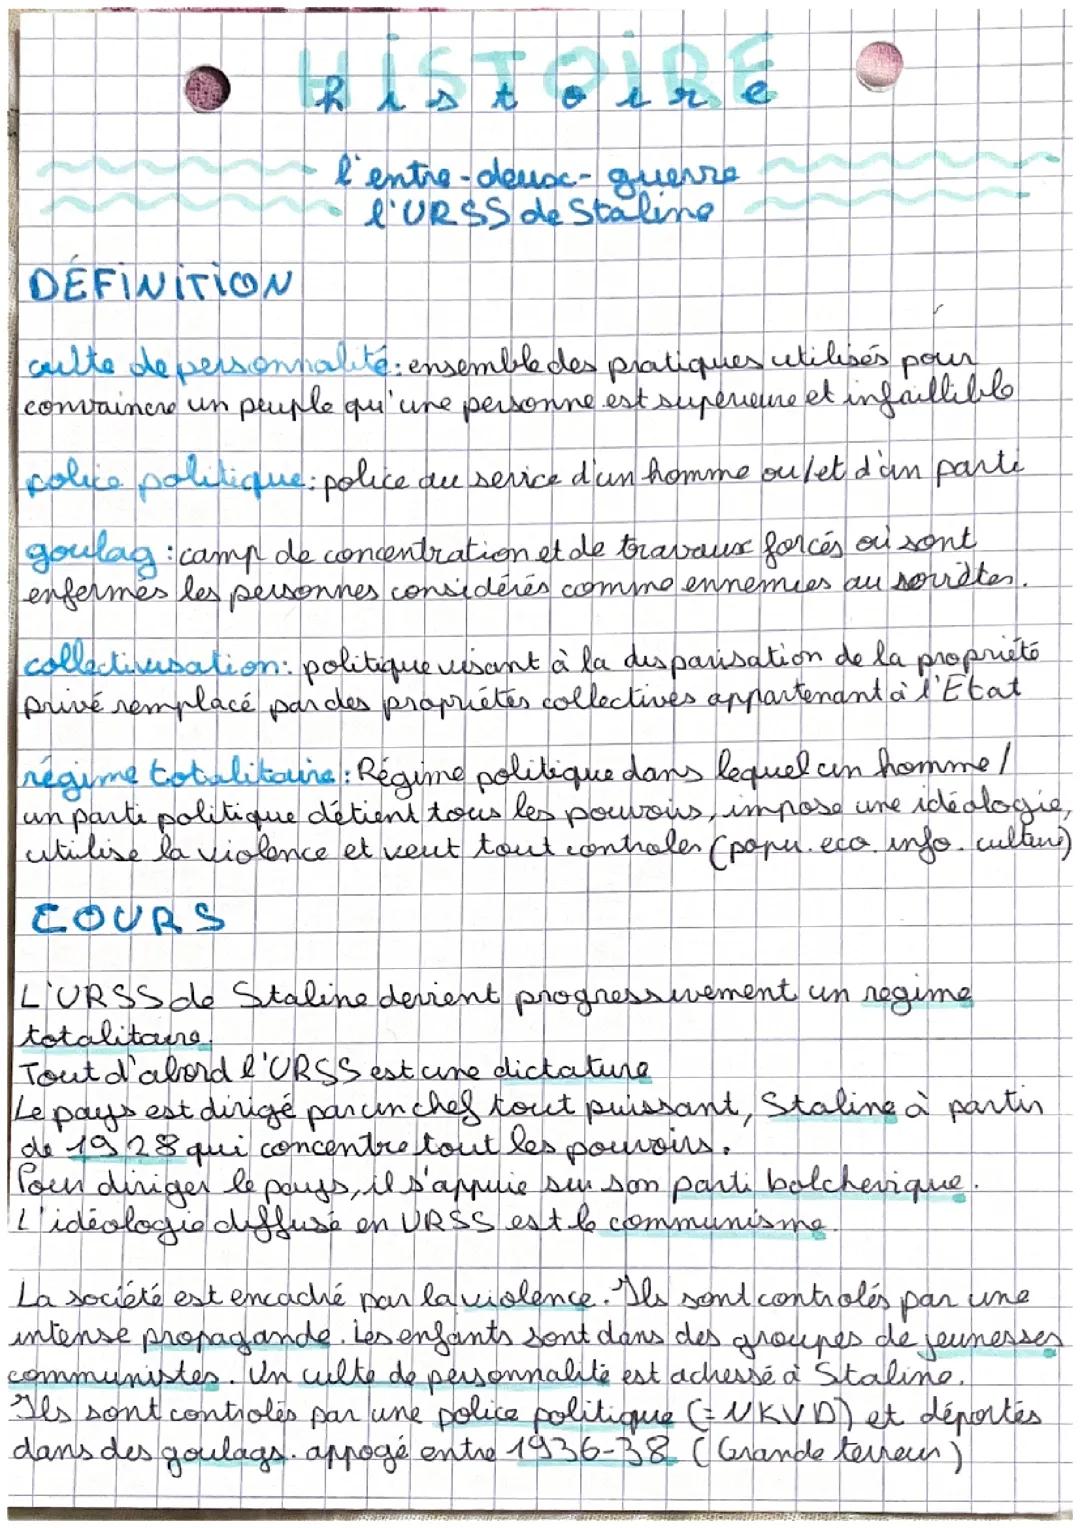 HISTOIRE
histoire
l'entre-deux-guerre
l'URSS de Staline
DÉFINITION
culte de personnalité: ensemble des pratiques utilisés pour
convaincre un peuple qu'une personne est supérieure et infaillible
police politique: police au service d'un homme ou/et d'un parti
goulag: camp de concentration et de travaux forcés où sont
enfermés les personnes considérés comme ennemies au soviétes.
collectivisation: politique visant à la disparisation de la propriété
privé remplacé par des propriétés collectives appartenant à l'État
régime totalitaire: Régime politique dans lequel un homme/
un parti politique détient tous les pouvoirs, impose une idéologie,
utilise la violence et veut tout controler (popu. eco. info. culture)
COURS
L'URSS de Staline devient progressivement un regime
totalitaire.
Tout d'abord l'URSS est une dictature
Le pays est dirigé par un chef tout puissant, Staline à partir
de 1928 qui concentre tout les pouvoirs.
Pour diriger le pays, il s'appuie sur son parti bolchevique.
L'idéologie diffusé en URSS est le communisme.
La société est encadré par la violence. Ils sont controlés par une
intense propagande. Les enfants sont dans des groupes de jeunesses
communistes. Un culte de personnalité est adressé à Staline.
Ils sont controlés par une police politique (= NKVD) et déportés
dans des goulags. appogé entre 1936-38 (Grande terreur)